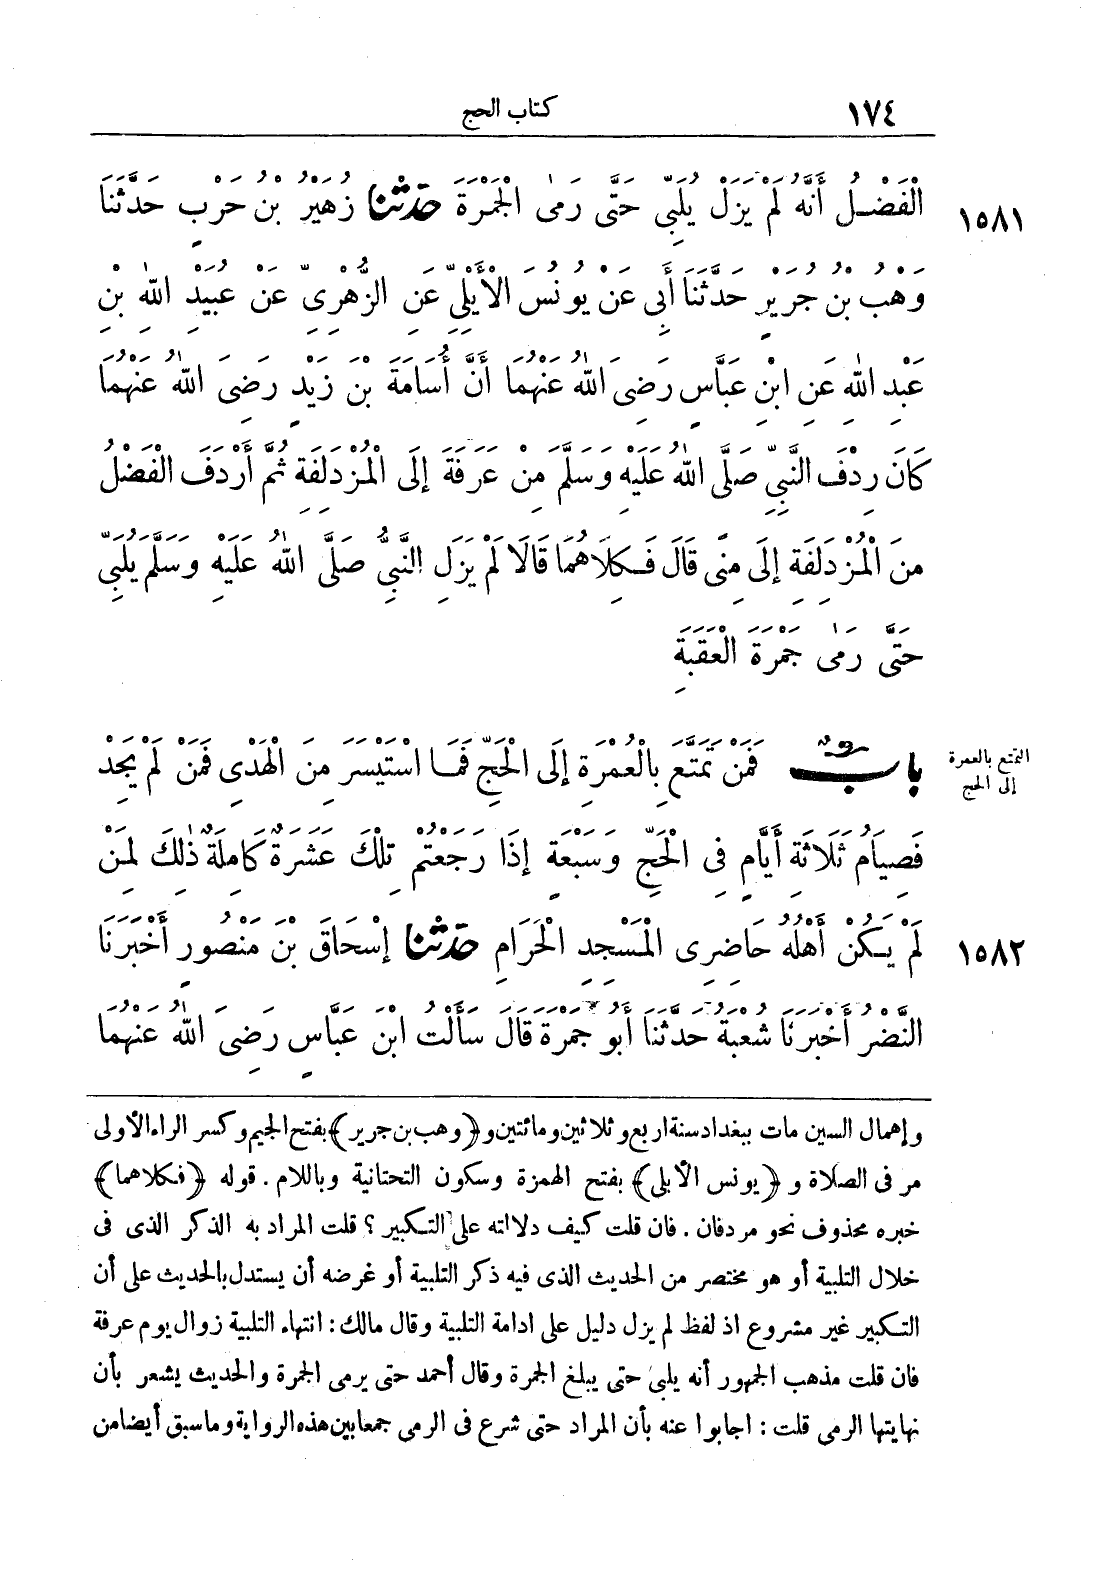 ١٧٤
كتاب الحج
١٥٨١
الْفَضْلُ أَنَّهُ لَمْ يَزَلْ يُلَبِّي حَتَّى رَمَى الْجَمْرَةَ حدثنا زُهَيْرُ بْنُ حَرْبٍ حَدَّثَنَا
وَهْبُ بْنُ جَرِيرٍ حَدَّثَنَا أَبِي عَنْ يُونُسَ الْأَيْلِيِّ عَنِ الزُّهْرِيِّ عَنْ عُبَيْدِ اللهِ بْنِ
عَبْدِ اللهِ عَنِ ابْنِ عَبَّاسٍ رَضِيَ اللهُ عَنْهُمَا أَنَّ أُسَامَةَ بْنَ زَيْدٍ رَضِيَ اللهُ عَنْهُمَا
كَانَ رِدْفَ النَّبِيِّ صَلَّى اللهُ عَلَيْهِ وَسَلَّمَ مِنْ عَرَفَةَ إِلَى الْمُزْدَلِفَةِ ثُمَّ أَرْدَفَ الْفَضْلَ
مِنَ الْمُزْدَلِفَةِ إِلَى مِنًى قَالَ فَكِلَاهُمَا قَالَا لَمْ يَزَلِ النَّبِيُّ صَلَّى اللهُ عَلَيْهِ وَسَلَّمَ يُلَبِّي
حَتَّى رَمَى جَمْرَةَ الْعَقَبَةِ
التمتع بالعمرة
إلى الحج
بابٌ فَمَنْ تَمَتَّعَ بِالْعُمْرَةِ إِلَى الْحَجِّ فَمَا اسْتَيْسَرَ مِنَ الْهَدْيِ فَمَنْ لَمْ يَجِدْ
فَصِيَامُ ثَلَاثَةِ أَيَّامٍ فِي الْحَجِّ وَسَبْعَةٍ إِذَا رَجَعْتُمْ تِلْكَ عَشَرَةٌ كَامِلَةٌ ذٰلِكَ لِمَنْ
١٥٨٢
لَمْ يَكُنْ أَهْلُهُ حَاضِرِي الْمَسْجِدِ الْحَرَامِ حدثنا إِسْحَاقُ بْنُ مَنْصُورٍ أَخْبَرَنَا
النَّضْرُ أَخْبَرَنَا شُعْبَةُ حَدَّثَنَا أَبُو جَمْرَةَ قَالَ سَأَلْتُ ابْنَ عَبَّاسٍ رَضِيَ اللهُ عَنْهُمَا
وإهمال السين مات ببغداد سنة اربع وثلاثين ومائتين و﴿وهب بن جرير﴾ بفتح الجيم وكسر الراء الأولى
مر فى الصلاة و ﴿يونس الأيلى﴾ بفتح الهمزة وسكون التحتانية وباللام . قوله ﴿فكلاهما﴾
خبره محذوف نحو مردفان . فان قلت كيف دلالته على التكبير ؟ قلت المراد به الذكر الذى فى
خلال التلبية أو هو مختصر من الحديث الذى فيه ذكر التلبية أو غرضه أن يستدل بالحديث على أن
التكبير غير مشروع اذ لفظ لم يزل دليل على ادامة التلبية وقال مالك : انتهاء التلبية زوال يوم عرفة
فان قلت مذهب الجمهور أنه يلبى حتى يبلغ الجمرة وقال أحمد حتى يرمى الجمرة والحديث يشعر بأن
نهايتها الرمى قلت : اجابوا عنه بأن المراد حتى شرع فى الرمى جمعا بين هذه الرواية وما سبق أيضا من